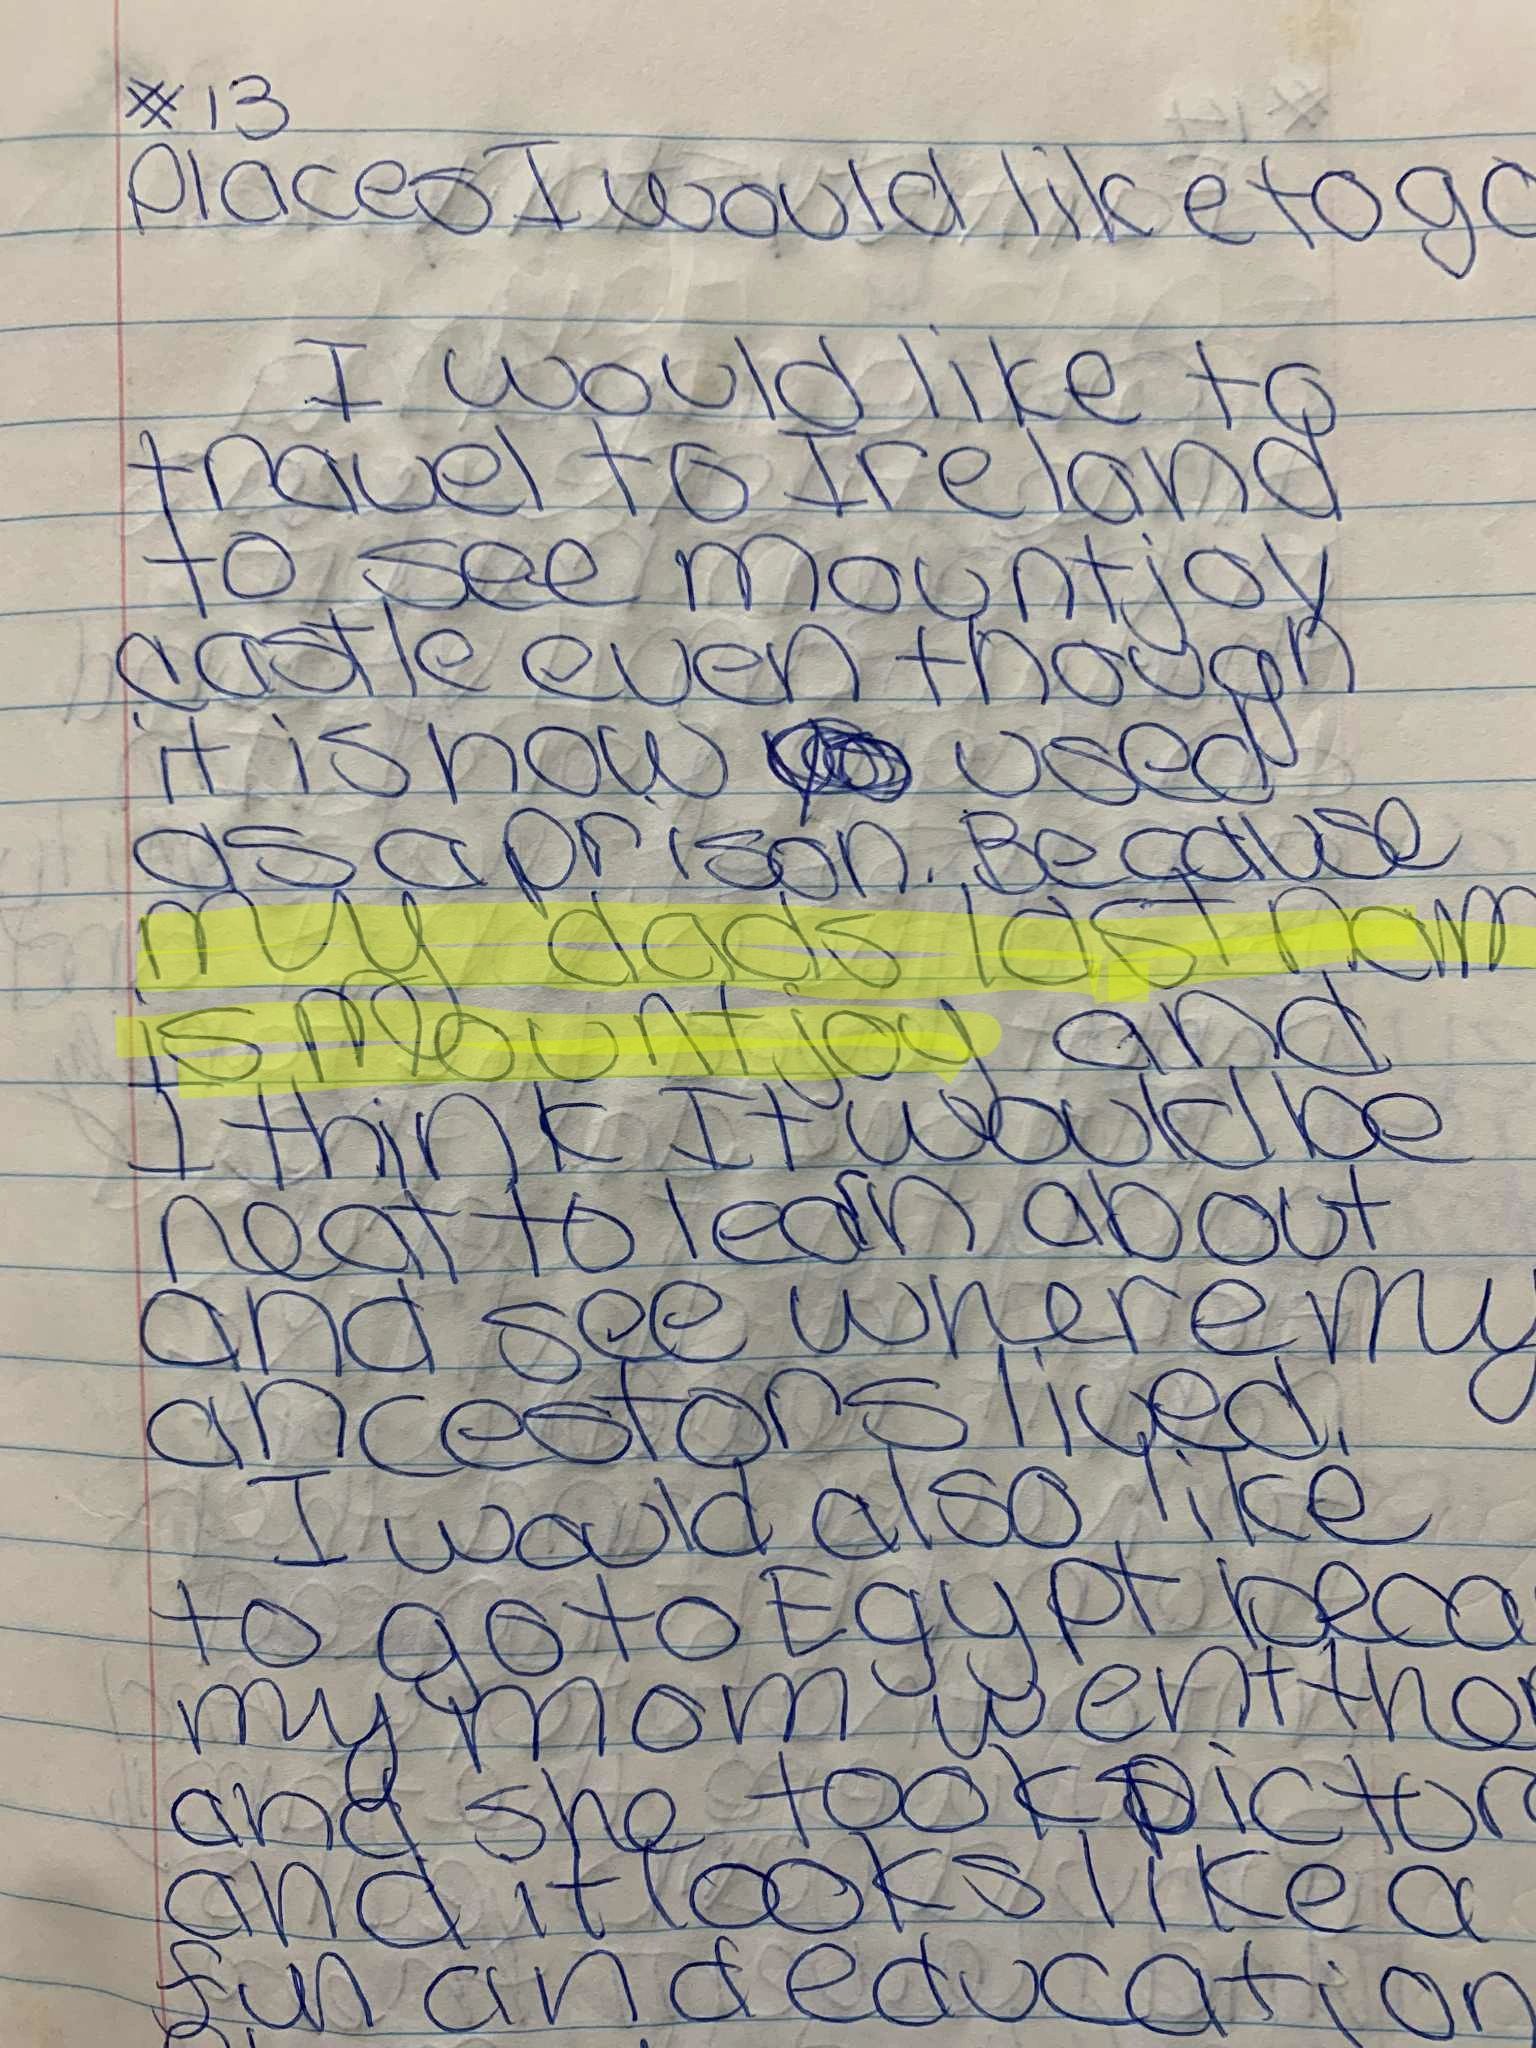 #13
Places I would like to go
I would like to
travel to Ireland
to see mountjoy
castle even though
it is now used
as a prison. Because
my dads last nam
is mountjoy and
I think It would be
neat to learn about
and see where my
ancestors lived.
I would also like
to go to Egypt becau
my mom went
and she took pictur
and it looks like a
fun and education